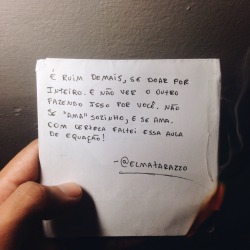 É RUIM DEMAIS, SE DOAR POR
INTEIRO. E NÃO VER O OUTRO
FAZENDO ISSO POR VOCÊ. NÃO
SE "AMA" SOZINHO, E SE AMA.
COM CERTEZA FALTEI ESSA AULA
DE EQUAÇÃO!
-@ELMATARAZZO